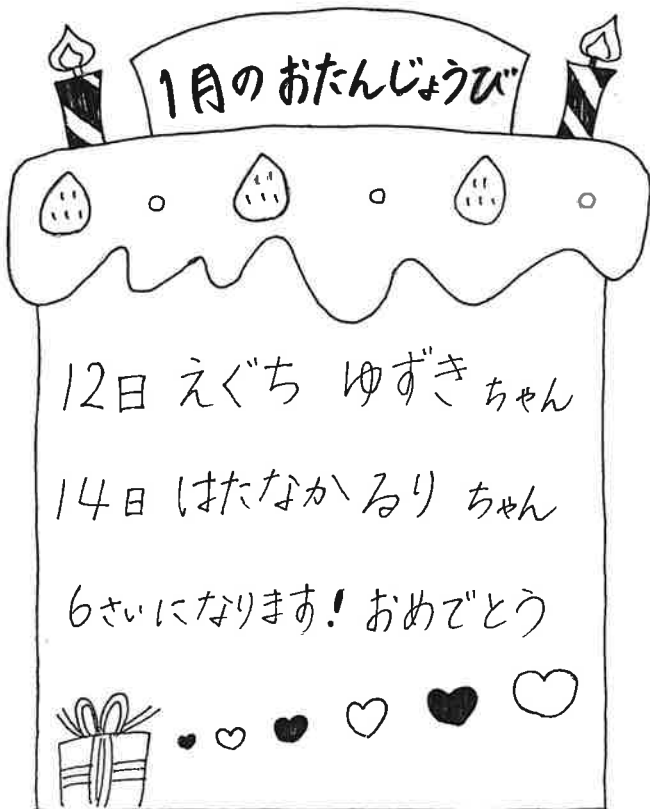 1月のおたんじょうび
12日 えぐち ゆずきちゃん
14日 はたなか るり ちゃん
6さいになります!おめでとう